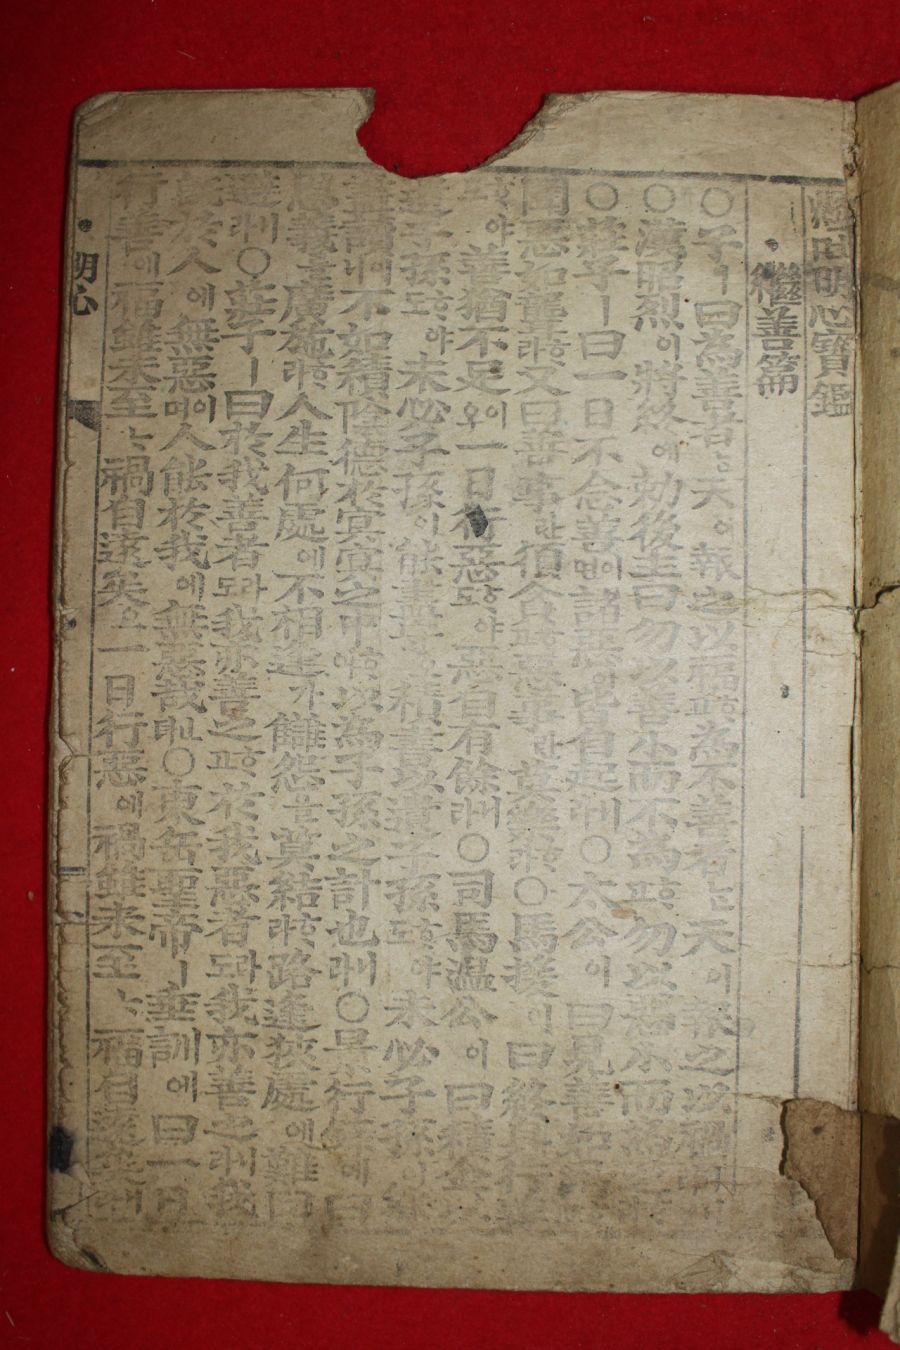 懸吐明心寶鑑
繼善篇
○子ㅣ曰爲善者는天이報之以福하고爲不善者는天이報之以禍
○漢昭烈이將終에勅後主曰勿以善小而不爲하고勿以惡小而爲之
○莊子ㅣ曰一日不念善이면諸惡이皆自起니라○太公이曰見善如渴
聞惡如聾하라又曰善事란須貪하고惡事란莫樂하라○馬援이曰終身行善
야善猶不足이오一日行惡도야惡自有餘니라○司馬溫公이曰積金以
遺子孫도하야未必子孫이能盡守積書以遺子孫도하야未必子孫이
盡讀이니不如積陰德於冥冥之中하야以爲子孫之計也니라○景行錄에曰
恩義를廣施하라人生何處에不相逢가讐怨을莫結하라路逢狹處에難回
避니라○莊子ㅣ曰於我善者도라我亦善之하고於我惡者도라我亦善之니라我
於人에無惡이며人能於我에無惡哉뎌○東岳聖帝ㅣ垂訓에曰一日
行善에福雖未至나禍自遠矣요一日行惡에禍雖未至나福自遠矣니
明心